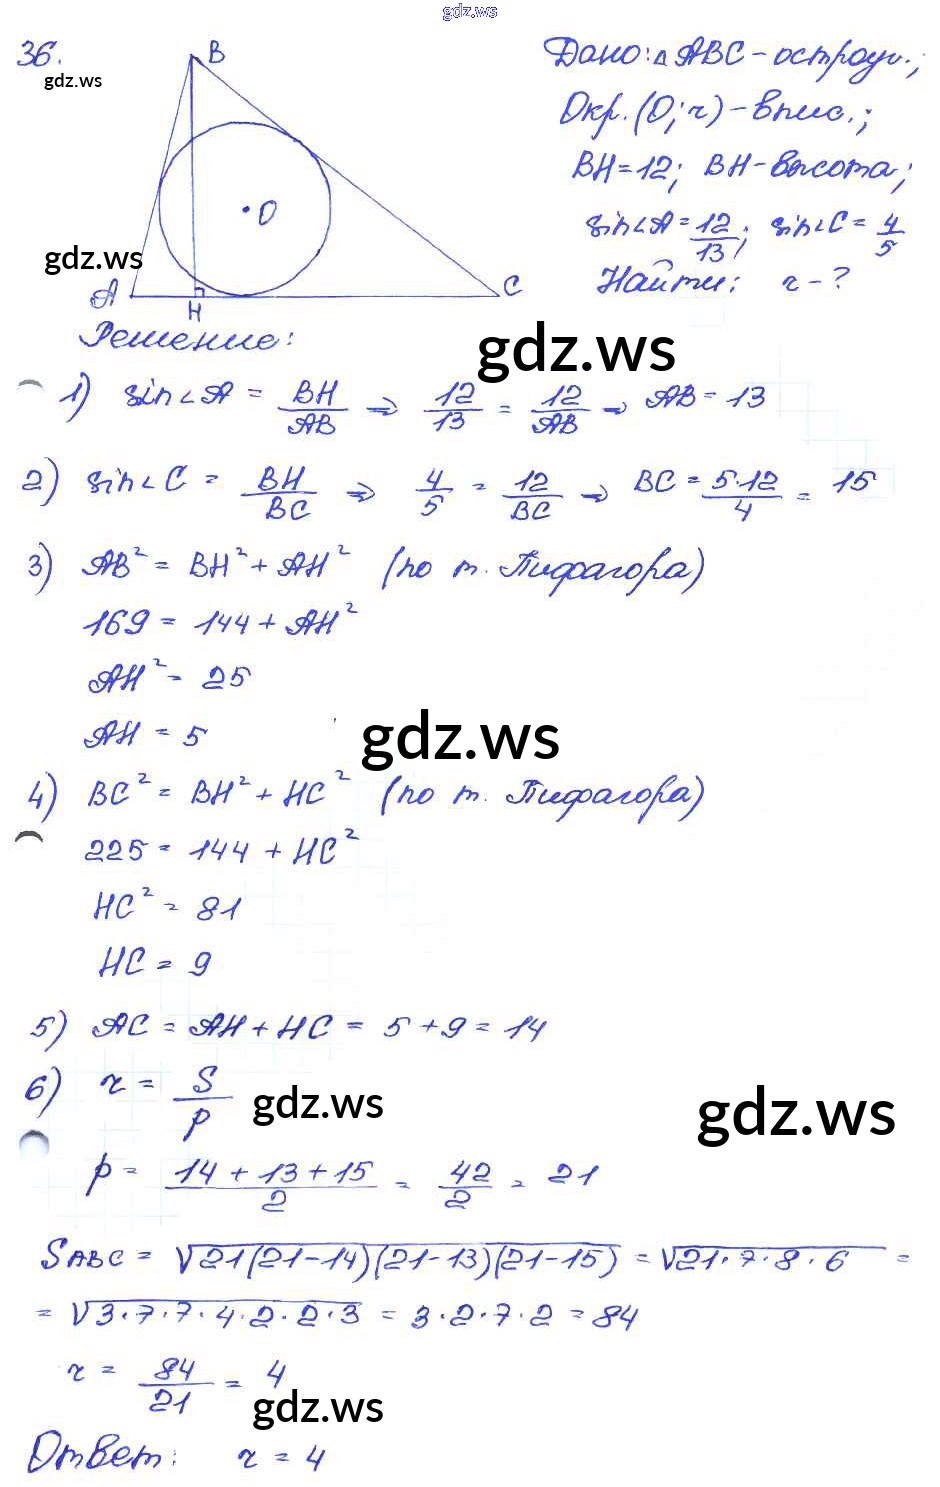 gdz.ws
36.
gdz.ws
B
O
A
H
C
Дано: △ABC - остроуг.;
Окр. (O; r) - впис.;
BH = 12; BH - высота;
sin∠A = 12/13; sin∠C = 4/5
Найти: r - ?
gdz.ws
Решение:
gdz.ws
1) sin∠A = BH/AB ⇒ 12/13 = 12/AB ⇒ AB = 13
2) sin∠C = BH/BC ⇒ 4/5 = 12/BC ⇒ BC = 5·12/4 = 15
3) AB² = BH² + AH² (по т. Пифагора)
169 = 144 + AH²
AH² = 25
AH = 5
gdz.ws
4) BC² = BH² + HC² (по т. Пифагора)
225 = 144 + HC²
HC² = 81
HC = 9
5) AC = AH + HC = 5 + 9 = 14
6) r = S/p
gdz.ws
gdz.ws
p = 14 + 13 + 15/2 = 42/2 = 21
SABC = √21(21-14)(21-13)(21-15) = √21·7·8·6 =
= √3·7·7·4·2·2·3 = 3·2·7·2 = 84
r = 84/21 = 4
gdz.ws
Ответ: r = 4